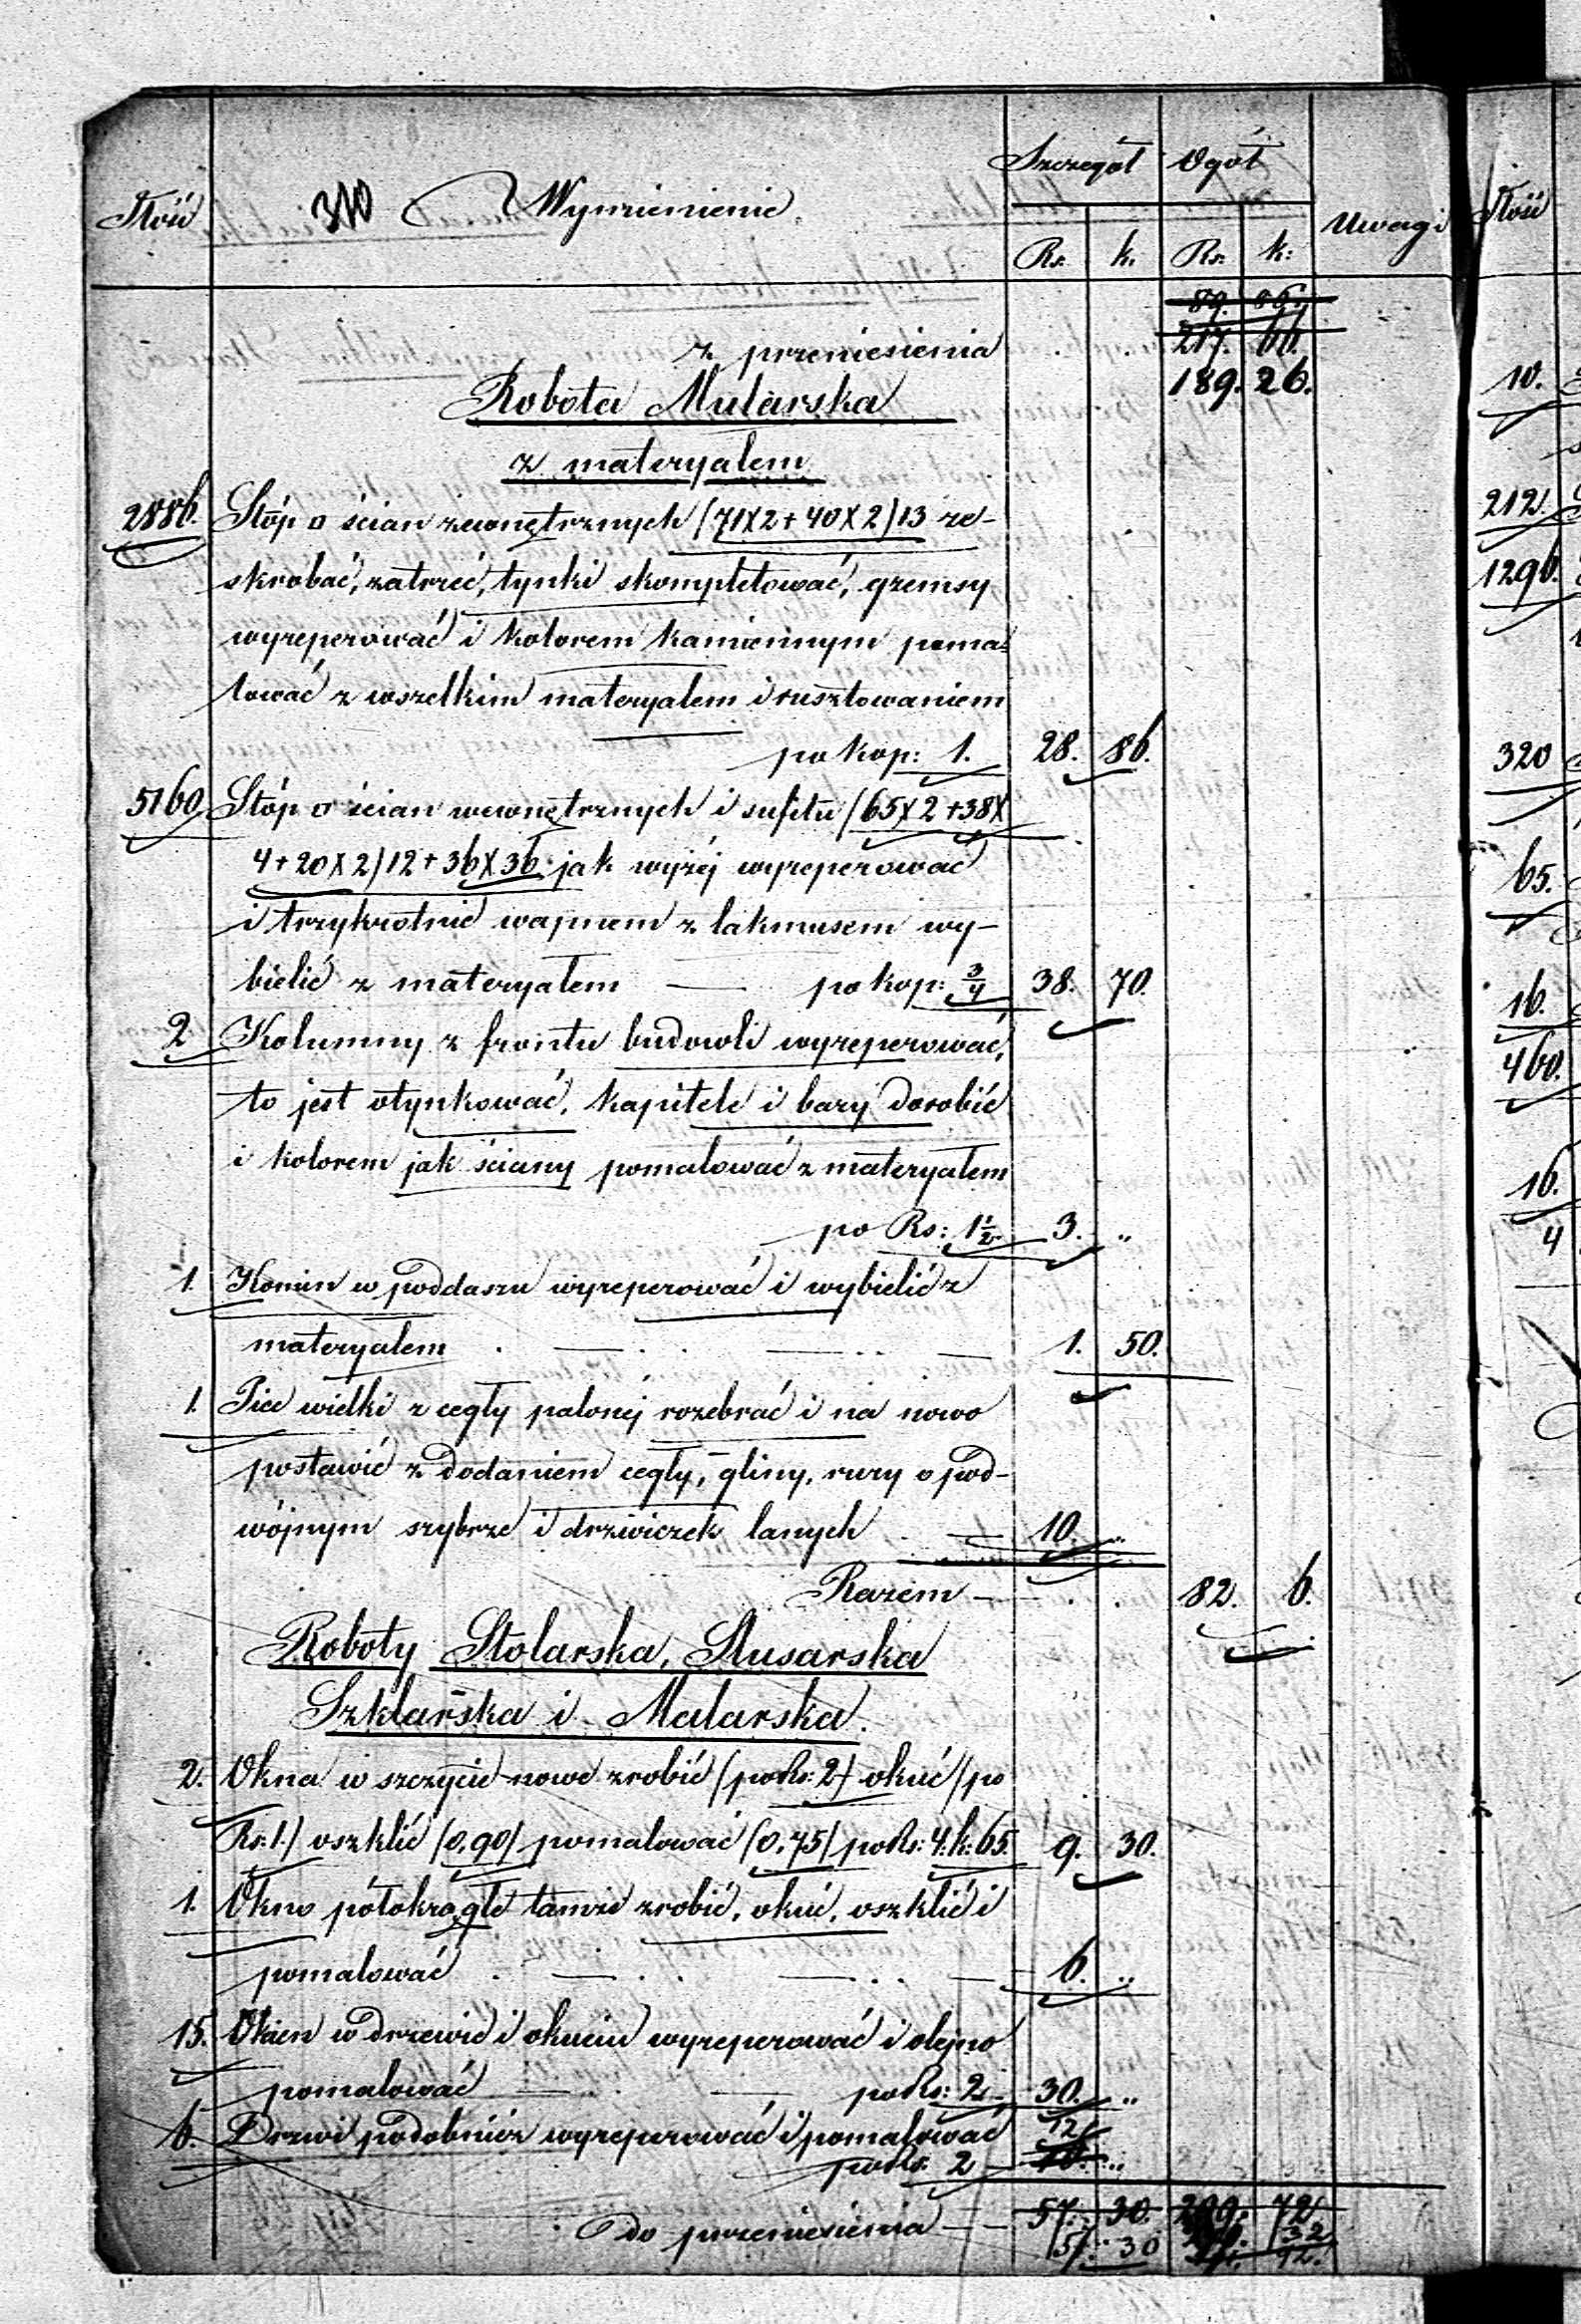 Ilość 310 Wymienienie Szczegół Ogół Uwagi
Rs. k. Rs: k:
89. 86.
z przeniesienia 217. 66.
Robota Mularska 189. 26.
z materyałem
2886. Stóp □ ścian zewnętrznych (71X2+40X2)13 ze-
skrobać, zatrzeć, tynki skompletować, gzemsy
wyreperować i kolorem kamiennym poma-
lować z wszelkim materyałem i rusztowaniem
po kop: 1. 28. 86.
5160. Stóp □ ścian wewnętrznych i sufitu (65X2+38X
4+20X2)12+36X36 jak wyżéj wyreperować
i trzykrotnie wapnem z lakmusem wy-
bielić z materyałem — po kop: 3/4 38. 70.
2 Kolumny z frontu budowli wyreperować,
to jest otynkować, kapitele i bazy dorobić
i kolorem jak ściany pomalować z materyałem
po Rs: 1 1/2 3. "
1. Komin w poddaszu wyreperować i wybielić z
materyałem 1. 50.
1. Piec wielki z cegły palonéj rozebrać i na nowo
postawić z dodaniem cegły, gliny, rury o pod-
wójnym szybrze i drzwiczek lanych — 10. "
Razem — 82. 6.
Roboty Stolarska, Slusarska
Szklarska i Malarska.
2. Okna w szczycie nowe zrobić (po Rs: 2) okuć (po
Rs: 1.) oszklić (0,90) pomalować (0,75) po Rs: 4. k: 65. 9. 30.
1. Okno półokrągłe tamże zrobić, okuć, oszklić i
pomalować 6. "
15. Okien w drzewie i okuciu wyreperować i olejno
pomalować — po Rs: 2 30. "
6. Drzwi podobnież wyreperować i pomalować 12
po Rs. 2 — "
do przeniesienia — 57. 30. 299. 72
57. 30 32
92.
Ilość
10.
212.
1296.
320
65.
16.
460.
16.
4